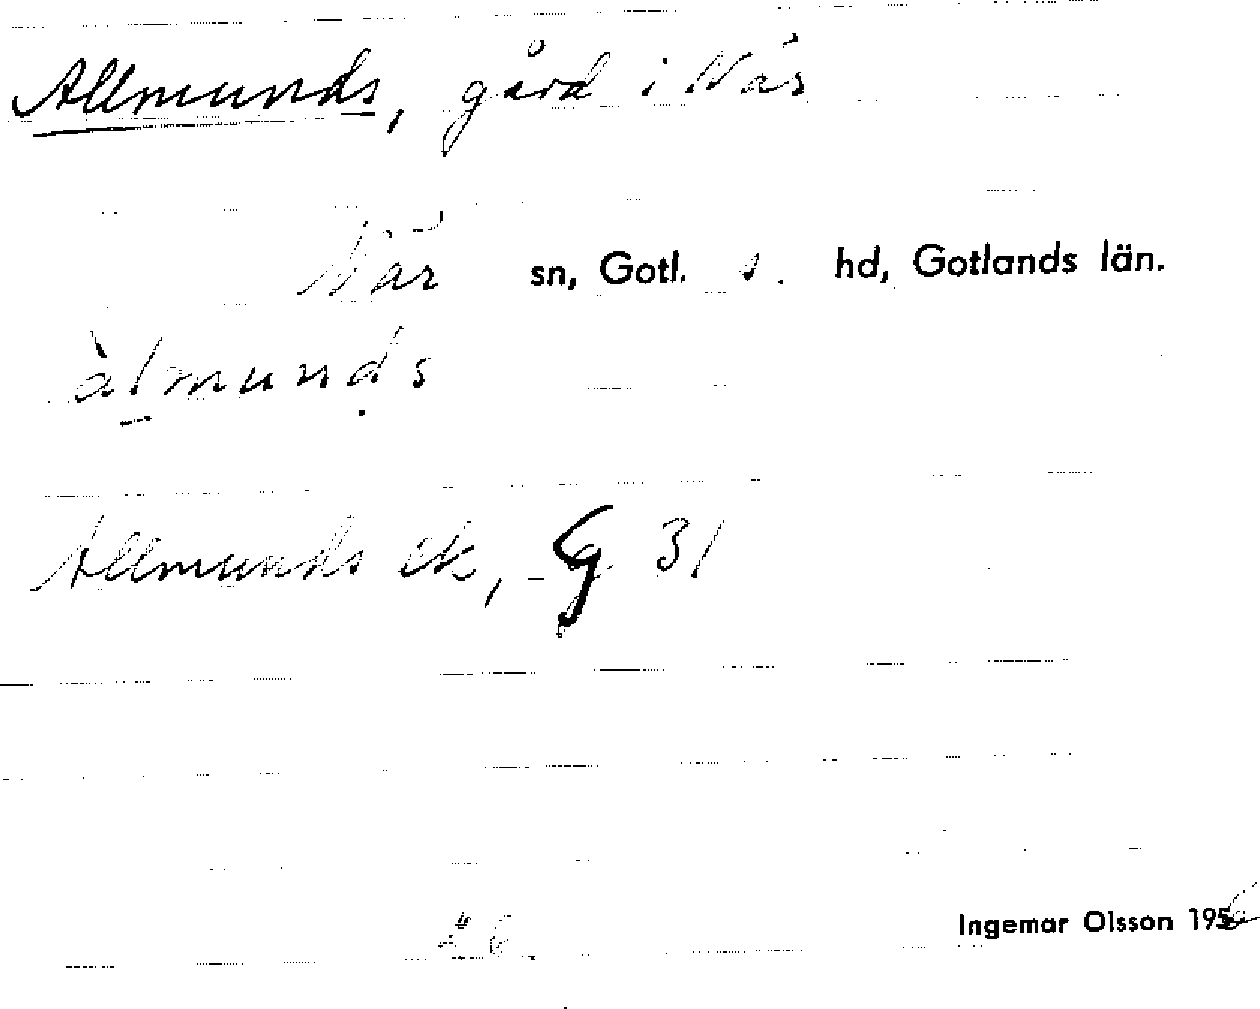 Allmunds, gård i När
När sn, Gotl. s. hd, Gotlands län.
àlmunds
Allmunds ek, G 31
Ingemar Olsson 1956